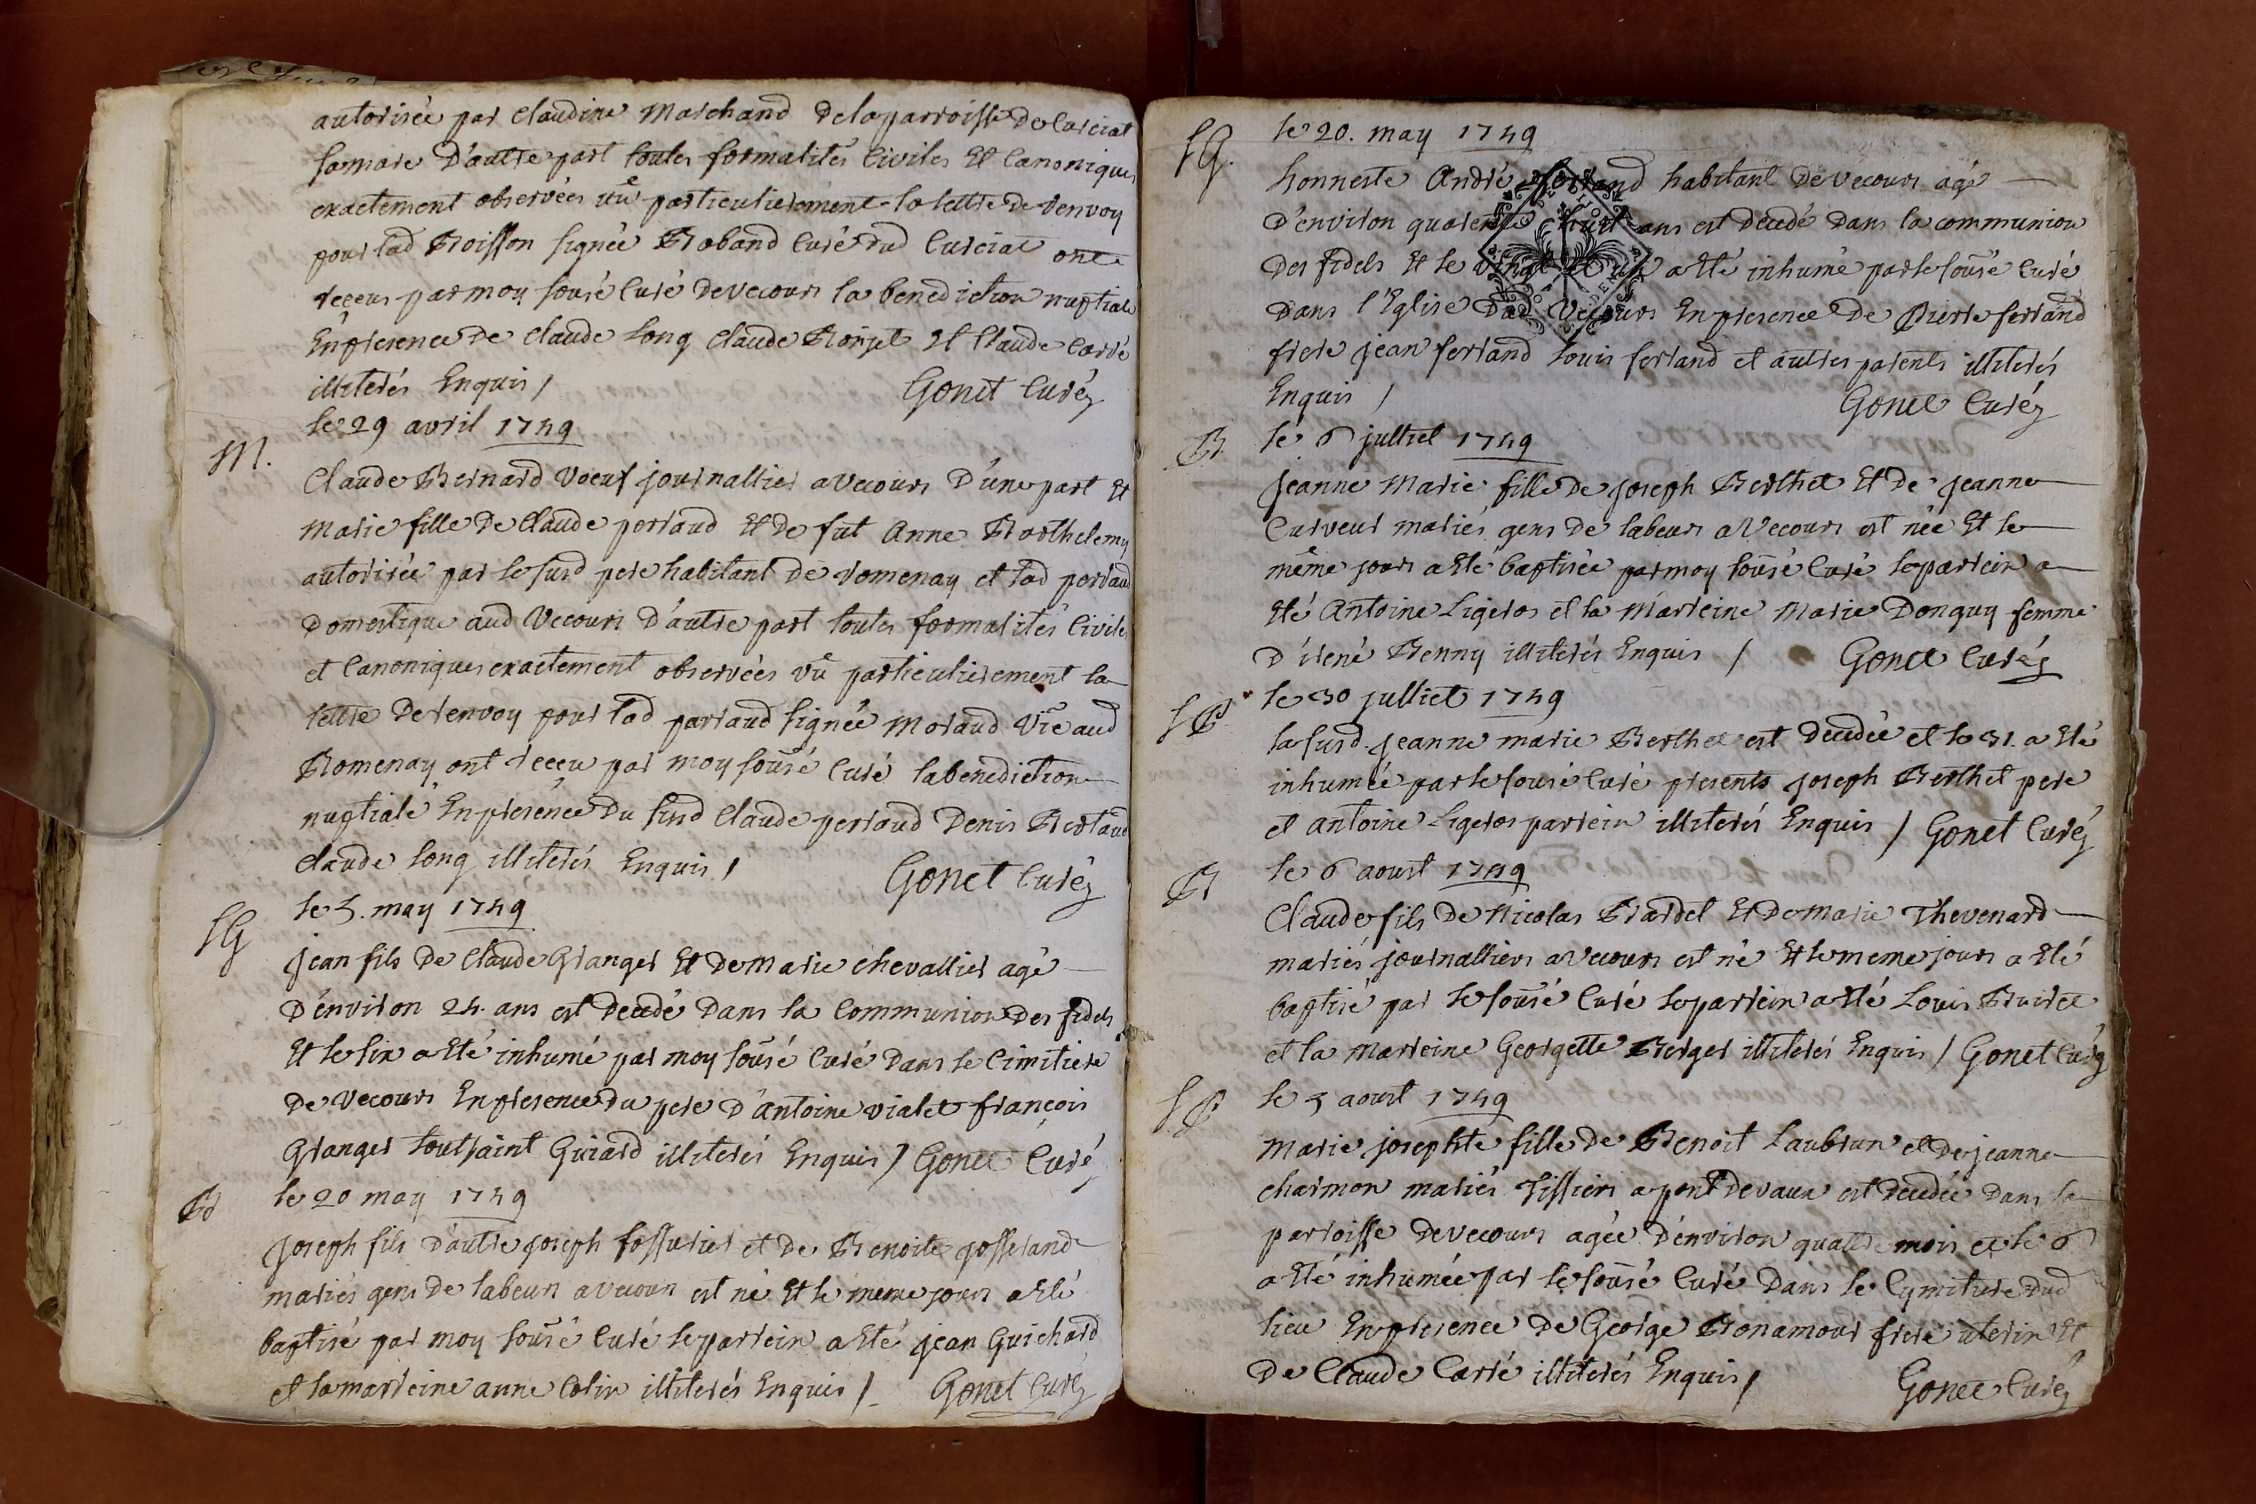 autorisée par Claudine Marchand dela parroisse de Curciat
sa mare D'autre part toutes formalités Civiles Et Canoniques
exactement observées vûe particulierement la lettre de renvoy
pour lad Boisson signée Raband Curé dud Curciat ont
receus par moy sousé Curé de vecours la benediction nuptiale
En presence de Claude Long Claude Borjet Et Claude Carré
illiterés Enquis / Gonet Curé
le 29 avril 1749
M.
Claude Bernard voeuf journallier a vecours D'une part Et
Marie fille de Claude perraud Et de fut Anne Barthelemy
autorisée par le susd pere habitant de romenay et lad perraud
Domestique aud Vecours D'autre part toutes formalités Civiles
et Canoniques exactement observées vû particulierement la
lettre de renvoy pour lad parraud signée Moraud Vic aud
Romenay ont receu par moy sousé Curé la benediction
nuptiale En presence Du susd Claude perraud Denis Bertaud
Claude Long illiterés Enquis / Gonet Curé
le 5. may 1749
SG
jean fils de Claude Granger Et de Marie chevallier agé
D'environ 24. ans est Decedé Dans la Communion des fidels
Et le six a Eté inhumé par moy sousé Curé Dans le Cimitiere
De vecours En presence du pere D'antoine vialet françois
Granger toutsaint Guiard illiterés Enquis / Gonet Curé
le 20 may 1749
B
joseph fils D'autre joseph fossurier et de Benoite josserand
mariés gens de labeurs a vecours est né Et le meme jours a Eté
baptisé par moy sousé Curé le parrein a Eté jean Guichard
et la marreine anne Colin illiterés Enquis / Gonet Curé
le 20. may 1749
SG.
honneste André ferrand habitant De vecours agé
D'environ quarente huit ans est Decedé Dans la communion
Des fidels Et le vingt et un a Eté inhumé par le sousé Curé
Dans l'Eglise Dud Vecours En presence De Pierre ferrand
frere jean ferrand Louis ferrand et autres parents illiterés
Enquis / Gonet Curé
B.
le 6 julliet 1749
jeanne Marie fille de joseph Berthet Et de jeanne
Curveur mariés gens de labeurs a Vecours est née Et le
même jours a Eté baptisée par moy sousé Curé le parrein a
Eté Antoine Ligeros et la Marreine Marie Donguy femme
D'irené Benny illiterés Enquis / Gonet Curé
le 30 julliet 1749
la susd. jeanne marie Berthet est Decedée et le 31. a Eté
inhumée par le sousé Curé presents joseph Berthet pere
et antoine Ligeros parrein illiterés Enquis / Gonet Curé
le 6 aoust 1749
B
Claude fils De Nicolas Bardel Et De marie Thevenard
mariés journalliers a Vecours est né Et le meme jours a Eté
baptisé par le sousé Curé le parrein a Eté Louis Buiret
et la Marreine Georgette Berger illiterés Enquis / Gonet Curé
le 5 aoust 1749
Marie josephte fille de Benoit Laubrun et de jeanne
charmon mariés Tissiers a pont de vaux est Decedée Dans la
parroisse De vecours agée D'environ quattre mois et le 6
a Eté inhumée par le sousé Curé Dans le Cymitiere dud
lieu En presence De George Bonamour frere uterin Et
De Claude Carré illiterés Enquis / Gonet Curé